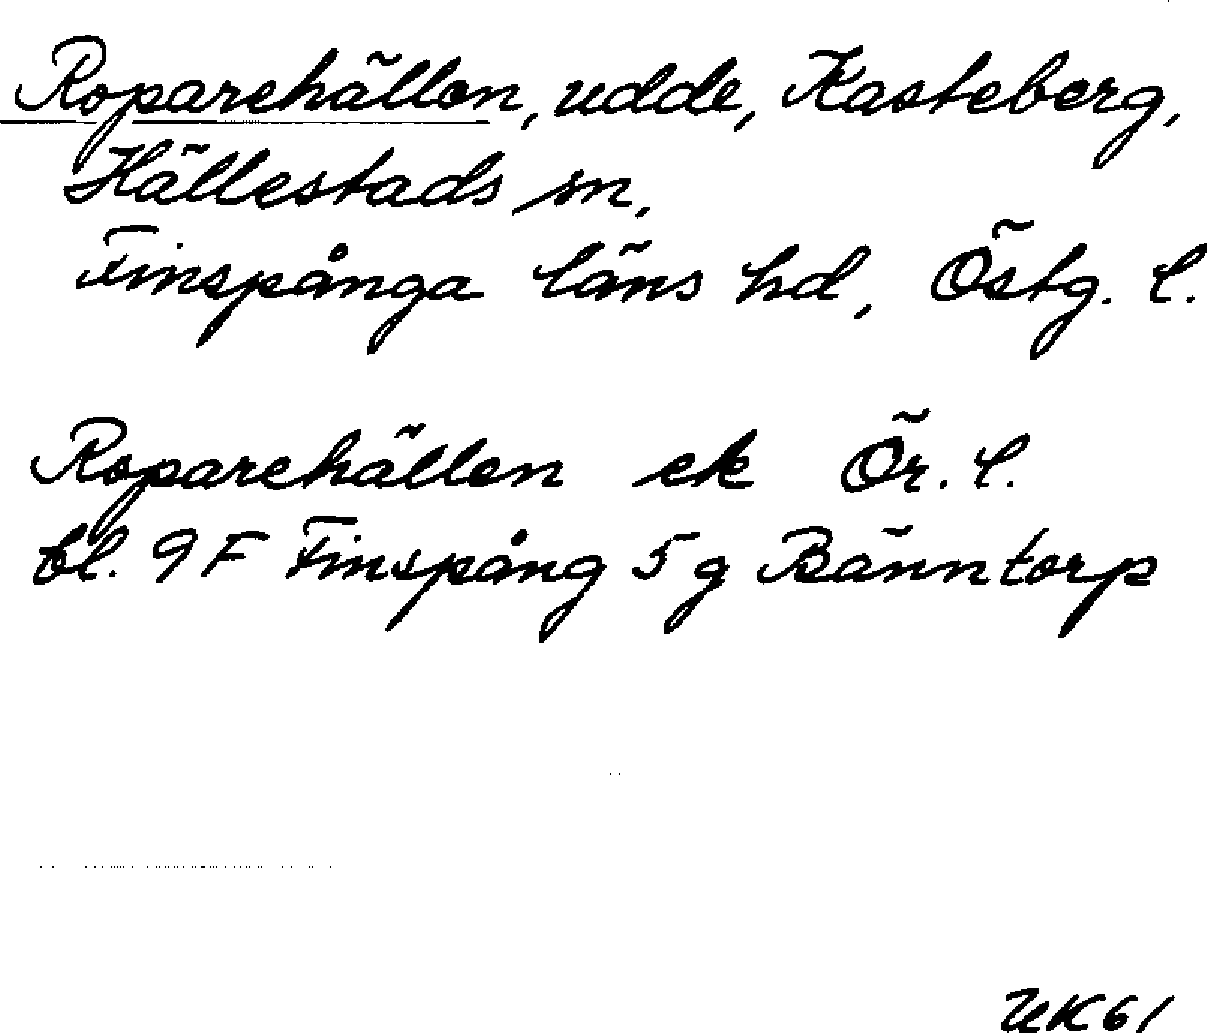 Roparehällen, udde, Kasteberg,
Hällestads sn,
Finspånga läns hd, Östg. l.
Roparehällen ek Ör. l.
bl. 9 F Finspång 5 g Bänntorp
UK 61